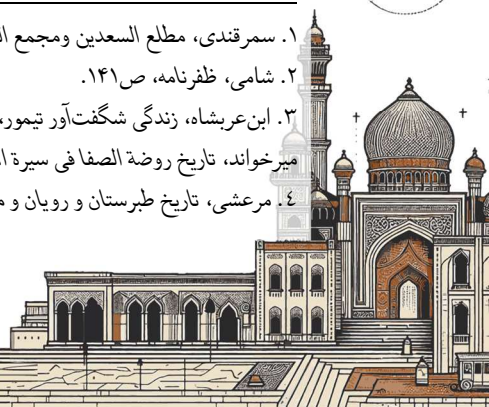 ۱. سمرقندی، مطلع السعدین ومجمع
۲. شامی، ظفرنامه، ص۱۴۱.
۳. ابن‌عربشاه، زندگی شگفت‌آور تیمور،
میرخواند، تاریخ روضة الصفا فی سیرة
٤. مرعشی، تاریخ طبرستان و رویان و